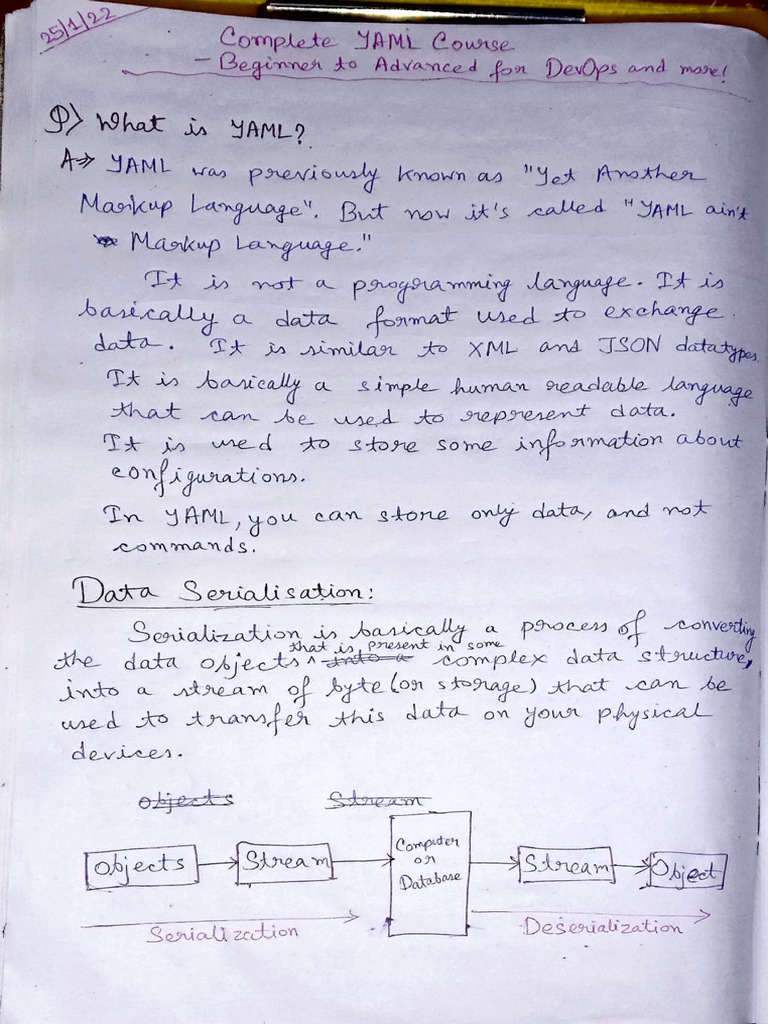 25/1/22
Complete YAML Course
- Beginner to Advanced for DevOps and more!
Q) What is YAML?
A⇒ YAML was previously known as "Yet Another
Markup Language". But now it's called "YAML ain't
Markup Language."
It is not a programming language. It is
basically a data format used to exchange
data. It is similar to XML and JSON datatypes.
It is basically a simple human readable language
that can be used to represent data.
It is used to store some information about
configurations.
In YAML, you can store only data, and not
commands.
Data Serialisation:
Serialization is basically a process of converting
that is present in some
the data objects into a complex data structure,
into a stream of byte (or storage) that can be
used to transfer this data on your physical
devices.
Objects Stream
Objects → Stream → Computer or Database → Stream → Object
Serialization Deserialization